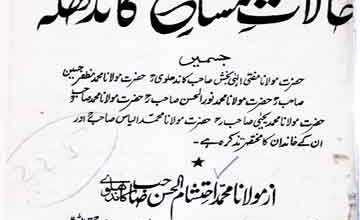 حالات مشائخ کاندھلہ
جسمیں
حضرت مولانا مفتی الٰہی بخش صاحب کاندھلوی رح حضرت مولانا محمد مظفر حسین
صاحب رح حضرت مولانا محمد نور الحسن صاحب رح حضرت مولانا محمد صاحب رح
حضرت مولانا محمد یحییٰ صاحب رح حضرت مولانا محمد الیاس صاحب رح اور
ان کے خاندان کا مختصر تذکرہ ہے۔
225
از مولانا محمد احتشام الحسن صاحب کاندھلوی